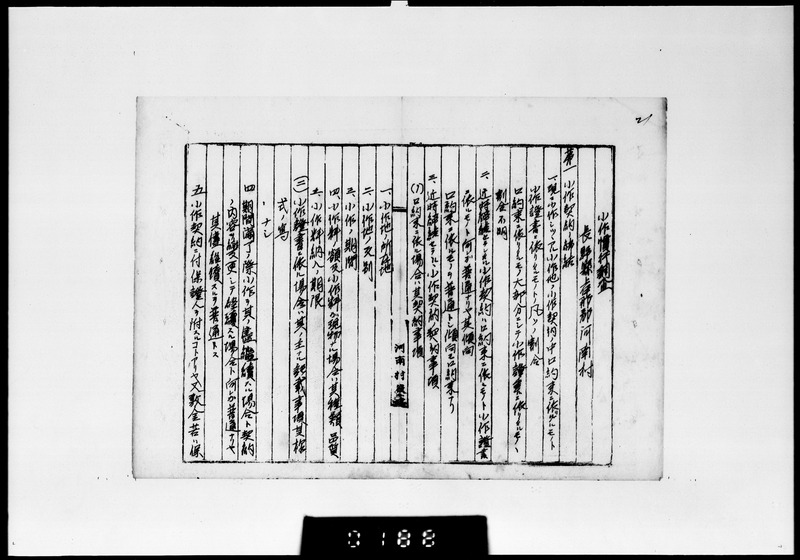 21
小作慣行調査
長野縣上高井郡河南村
第一 小作契約締結
一、現ニ小作シツヽアル小作地ノ小作契約中口約束ニ依ルモノト
小作證書ニ依リタルモノト凡ソノ割合
口約束ニ依リタルモノ大部分ニシテ小作證書ニ依リタルモノノ
割合不明
二、近時締結セラルヽ小作契約ハ口約束ニ依ルモノト小作證書
ニ依ルモノト何レガ普通ナリヤ其ノ傾向
口約束ニ依ルモノヲ普通トシ傾向モ口約束ナリ
三、近時締結セラルヽ小作契約ノ契約事項
(1)口約束ニ依ル場合ハ其ノ契約事項
河南村農會
一、小作地ノ所在地
二、小作地ノ反別
三、小作ノ期間
四、小作料ノ額及小作料ガ現物ナル場合ハ其ノ種類品質
五、小作料納入ノ期限
(二)小作證書ニ依ル場合ハ其ノ主ナル記載事項其ノ様
式ノ寫
ナシ
四 期間滿了ノ際小作ヲ其ノ儘繼續スル場合ト契約
ノ内容ヲ變更シテ繼續スル場合ト何レガ普通ナリヤ
其儘繼續スルヲ普通トス
五 小作契約ニ付保證人ヲ附スルコトアリヤ又敷金若ハ保
0188